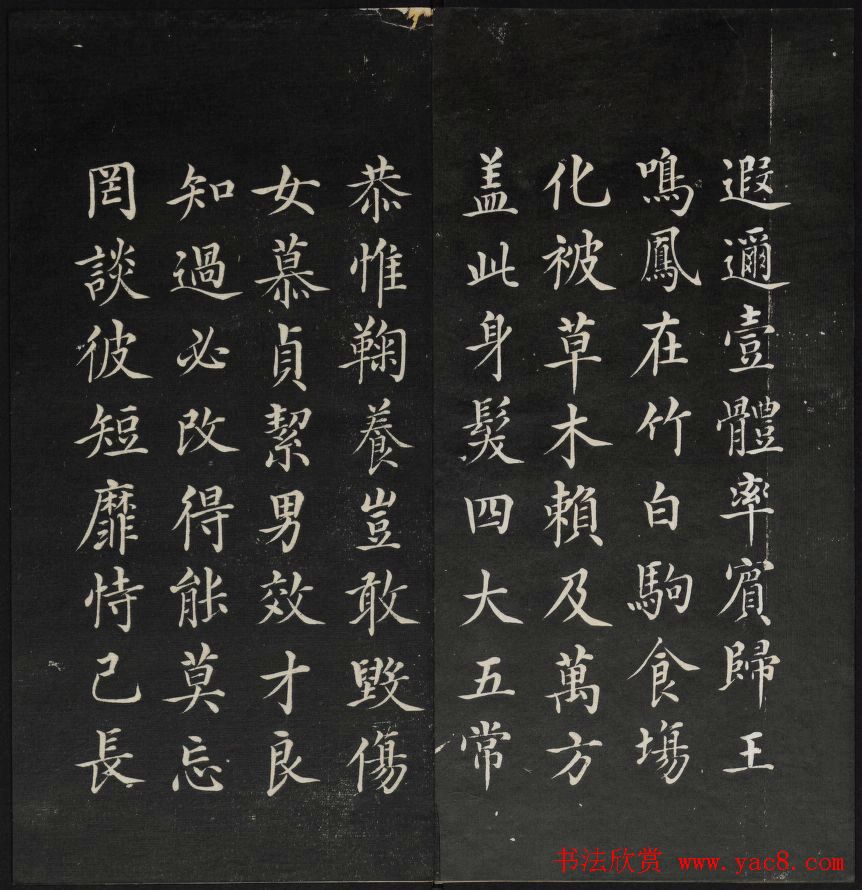 遐邇壹體率賓歸王
鳴鳳在竹白駒食塲
化被草木賴及萬方
盖此身髮四大五常
恭惟鞠養豈敢毀傷
女慕貞絜男效才良
知過必改得能莫忘
罔談彼短靡恃己長
书法欣赏 www.yac8.com